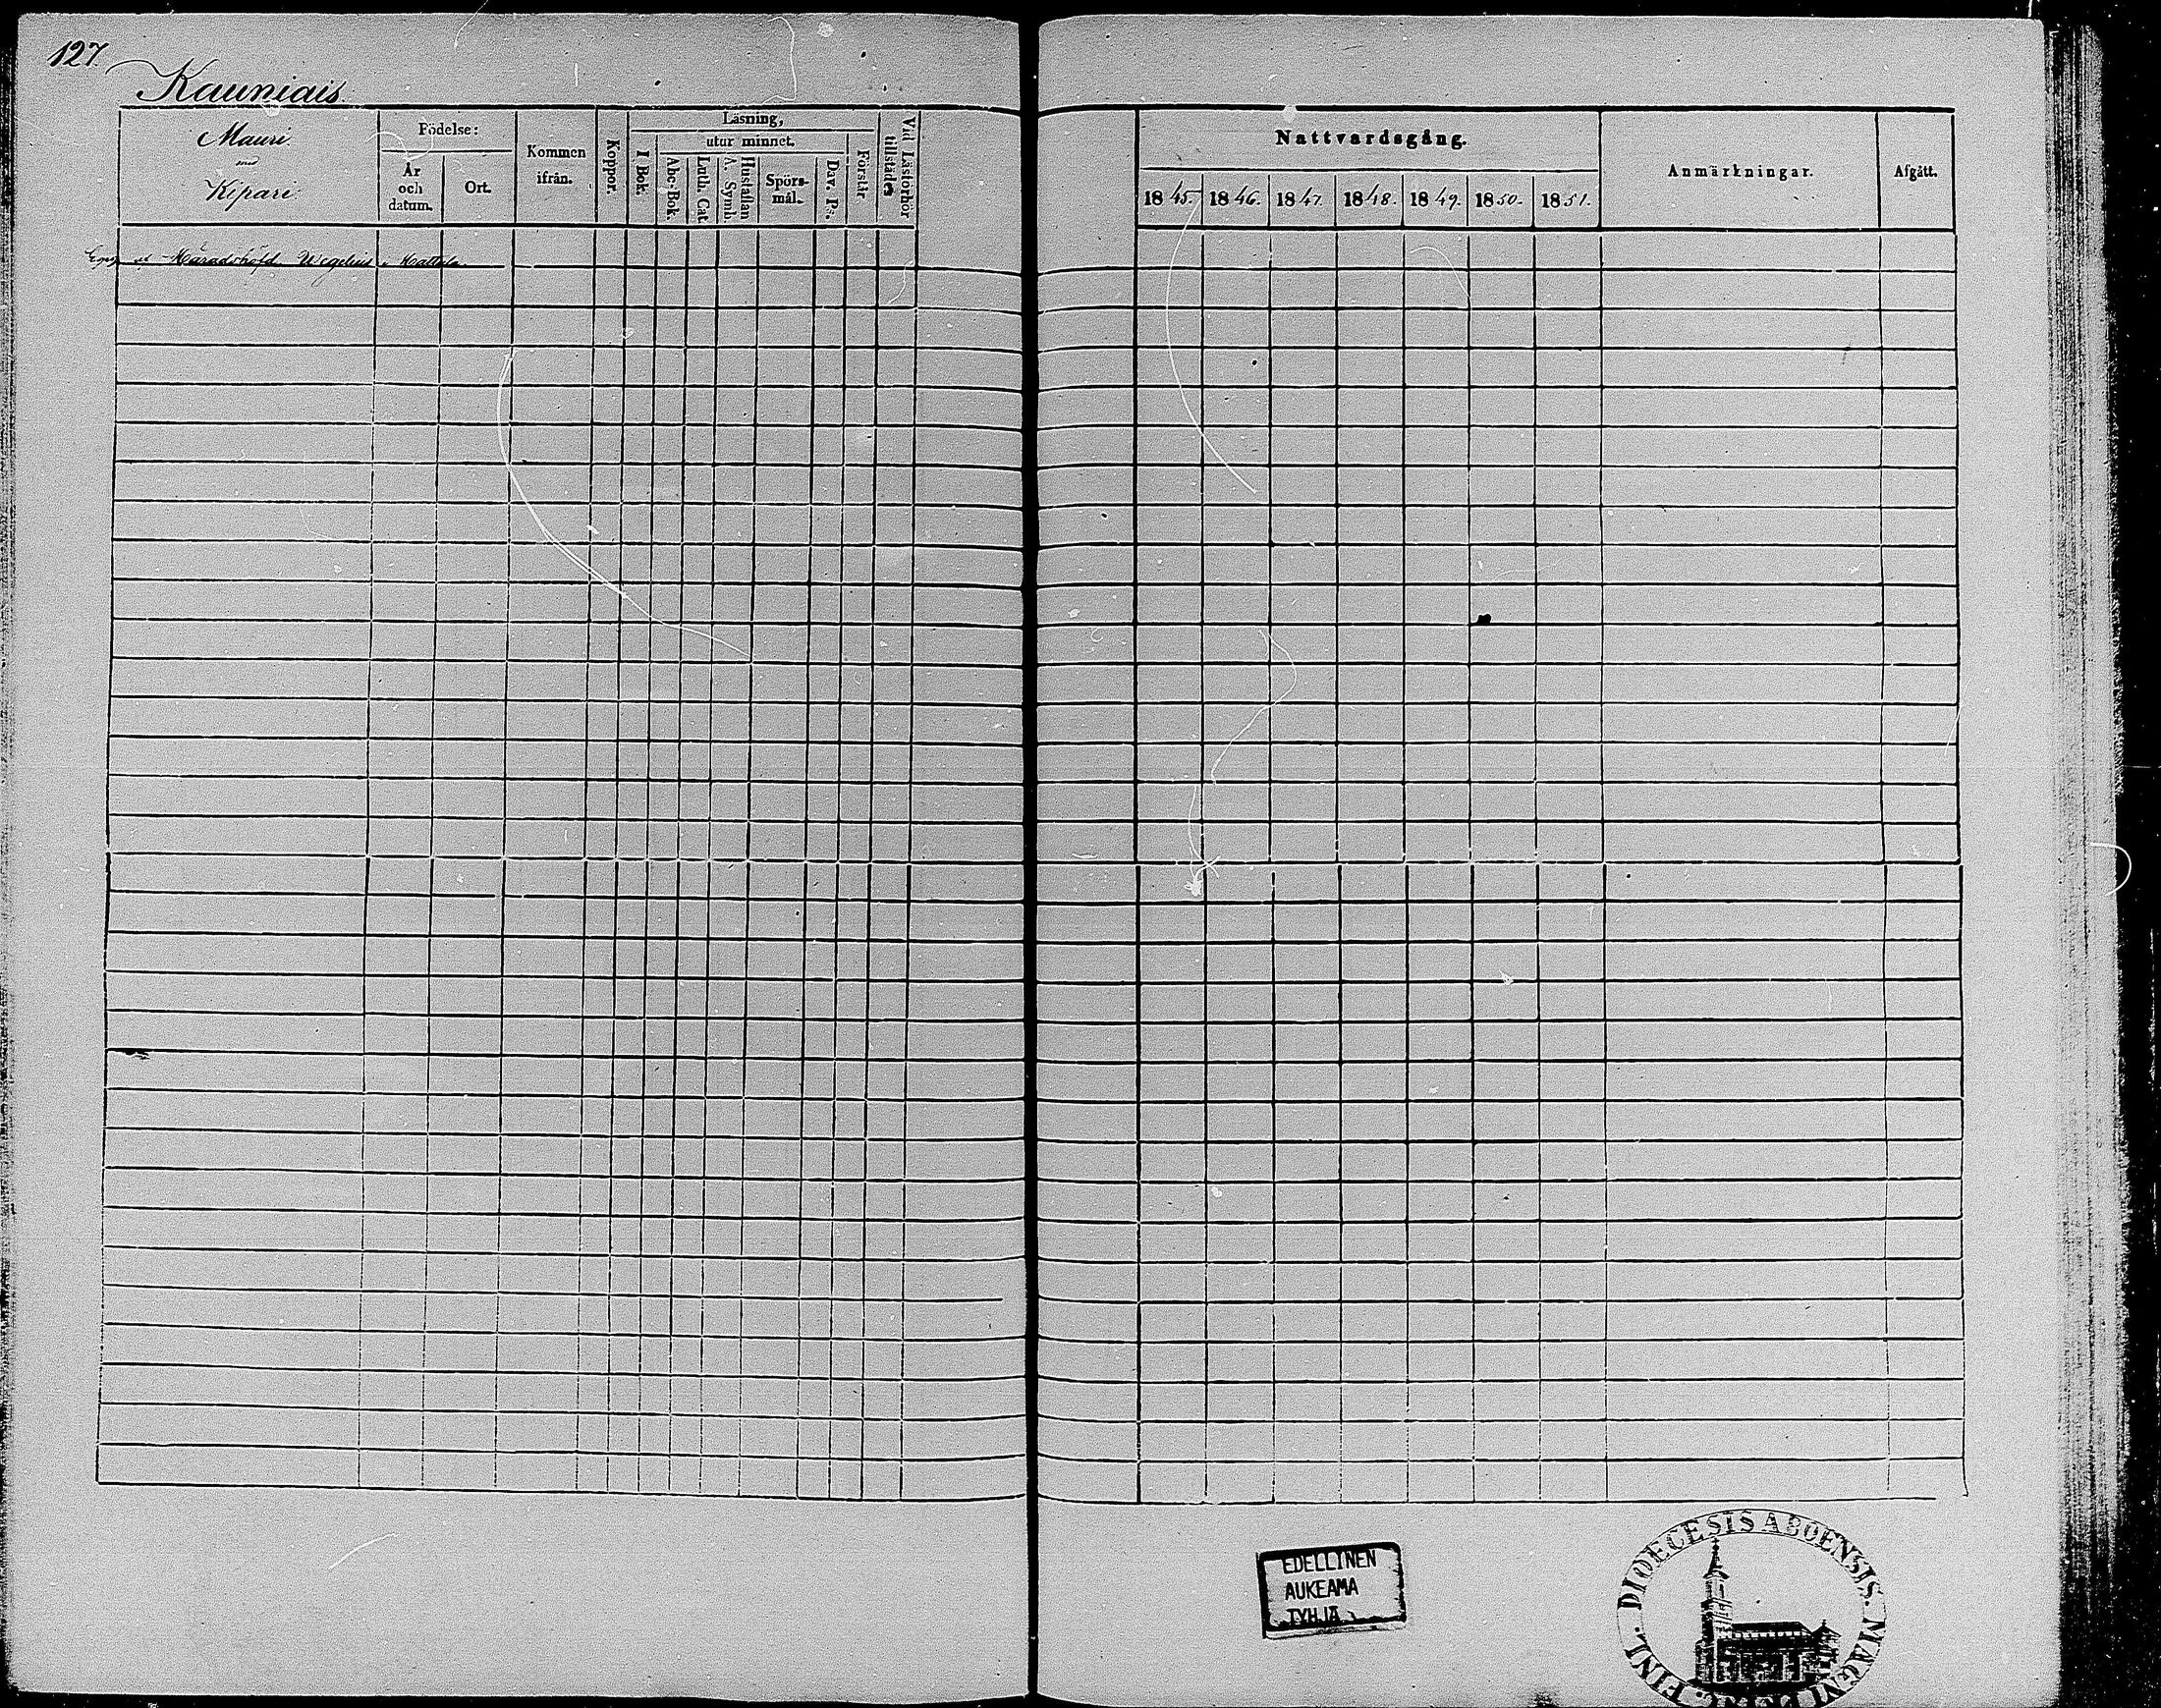 127.
Kauniais.
Mauri
med
Kipari.
Födelse:
År
och
datum.
Ort.
Kommen
ifrån.
Koppor.
Läsning,
utur minnet.
I Bok.
Abc-Bok.
Luth. Cat.
Hustaflan
A. Symb.
Spörs-
mål.
Dav. Ps.
Förstår
Vid Läsförhör
tillstädes
Nattvardsgång.
1845. 1846. 1847. 1848. 1849. 1850. 1851.
Anmärkningar.
Afgått.
af Häradshöfd. Wegelius i Kattala.
EDELLINEN
AUKEAMA
TYHJÄ
DIOECESIS ABOENSIS. MAGNI
FINL.